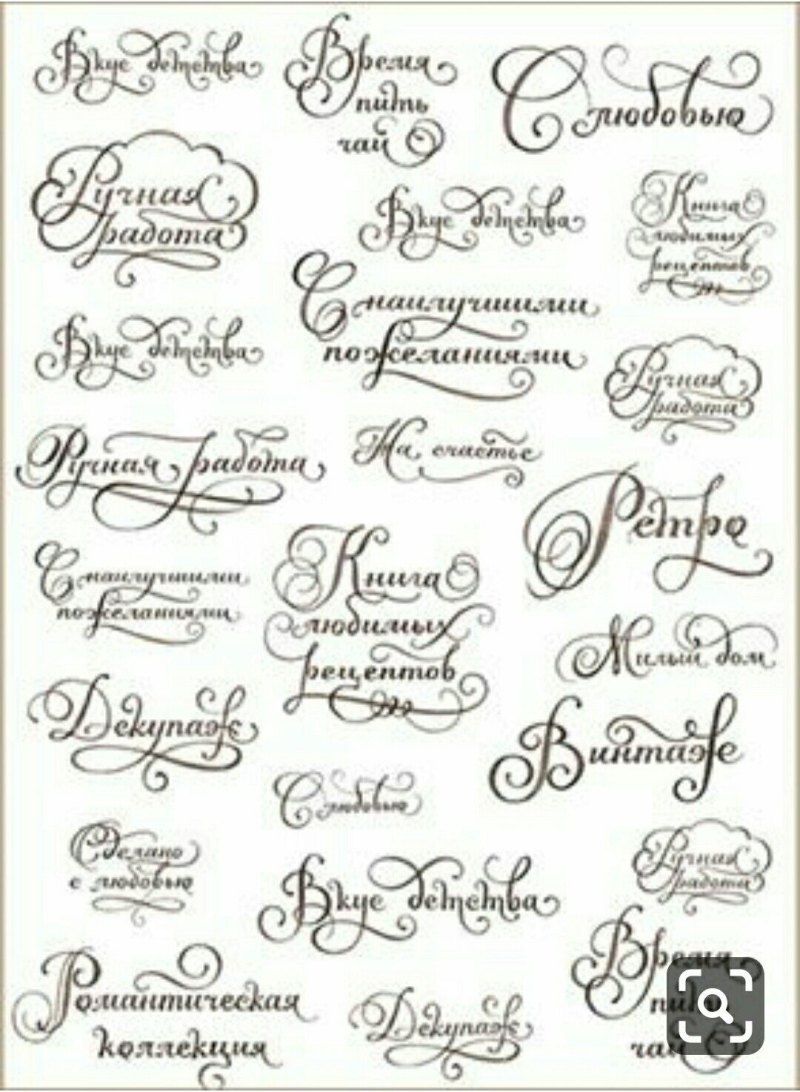 Вкус детства
Время
пить
чай
С любовью
Ручная
работа
Вкус детства
Книга
любимых
рецептов
С наилучшими
пожеланиями
Вкус детства
Ручная
работа
Ручная работа
На счастье
Ретро
С наилучшими
пожеланиями
Книга
любимых
рецептов
Милый дом
Декупаж
Винтаж
С любовью
Сделано
с любовью
Вкус детства
Ручная
работа
Романтическая
коллекция
Декупаж
Время
пить
чай